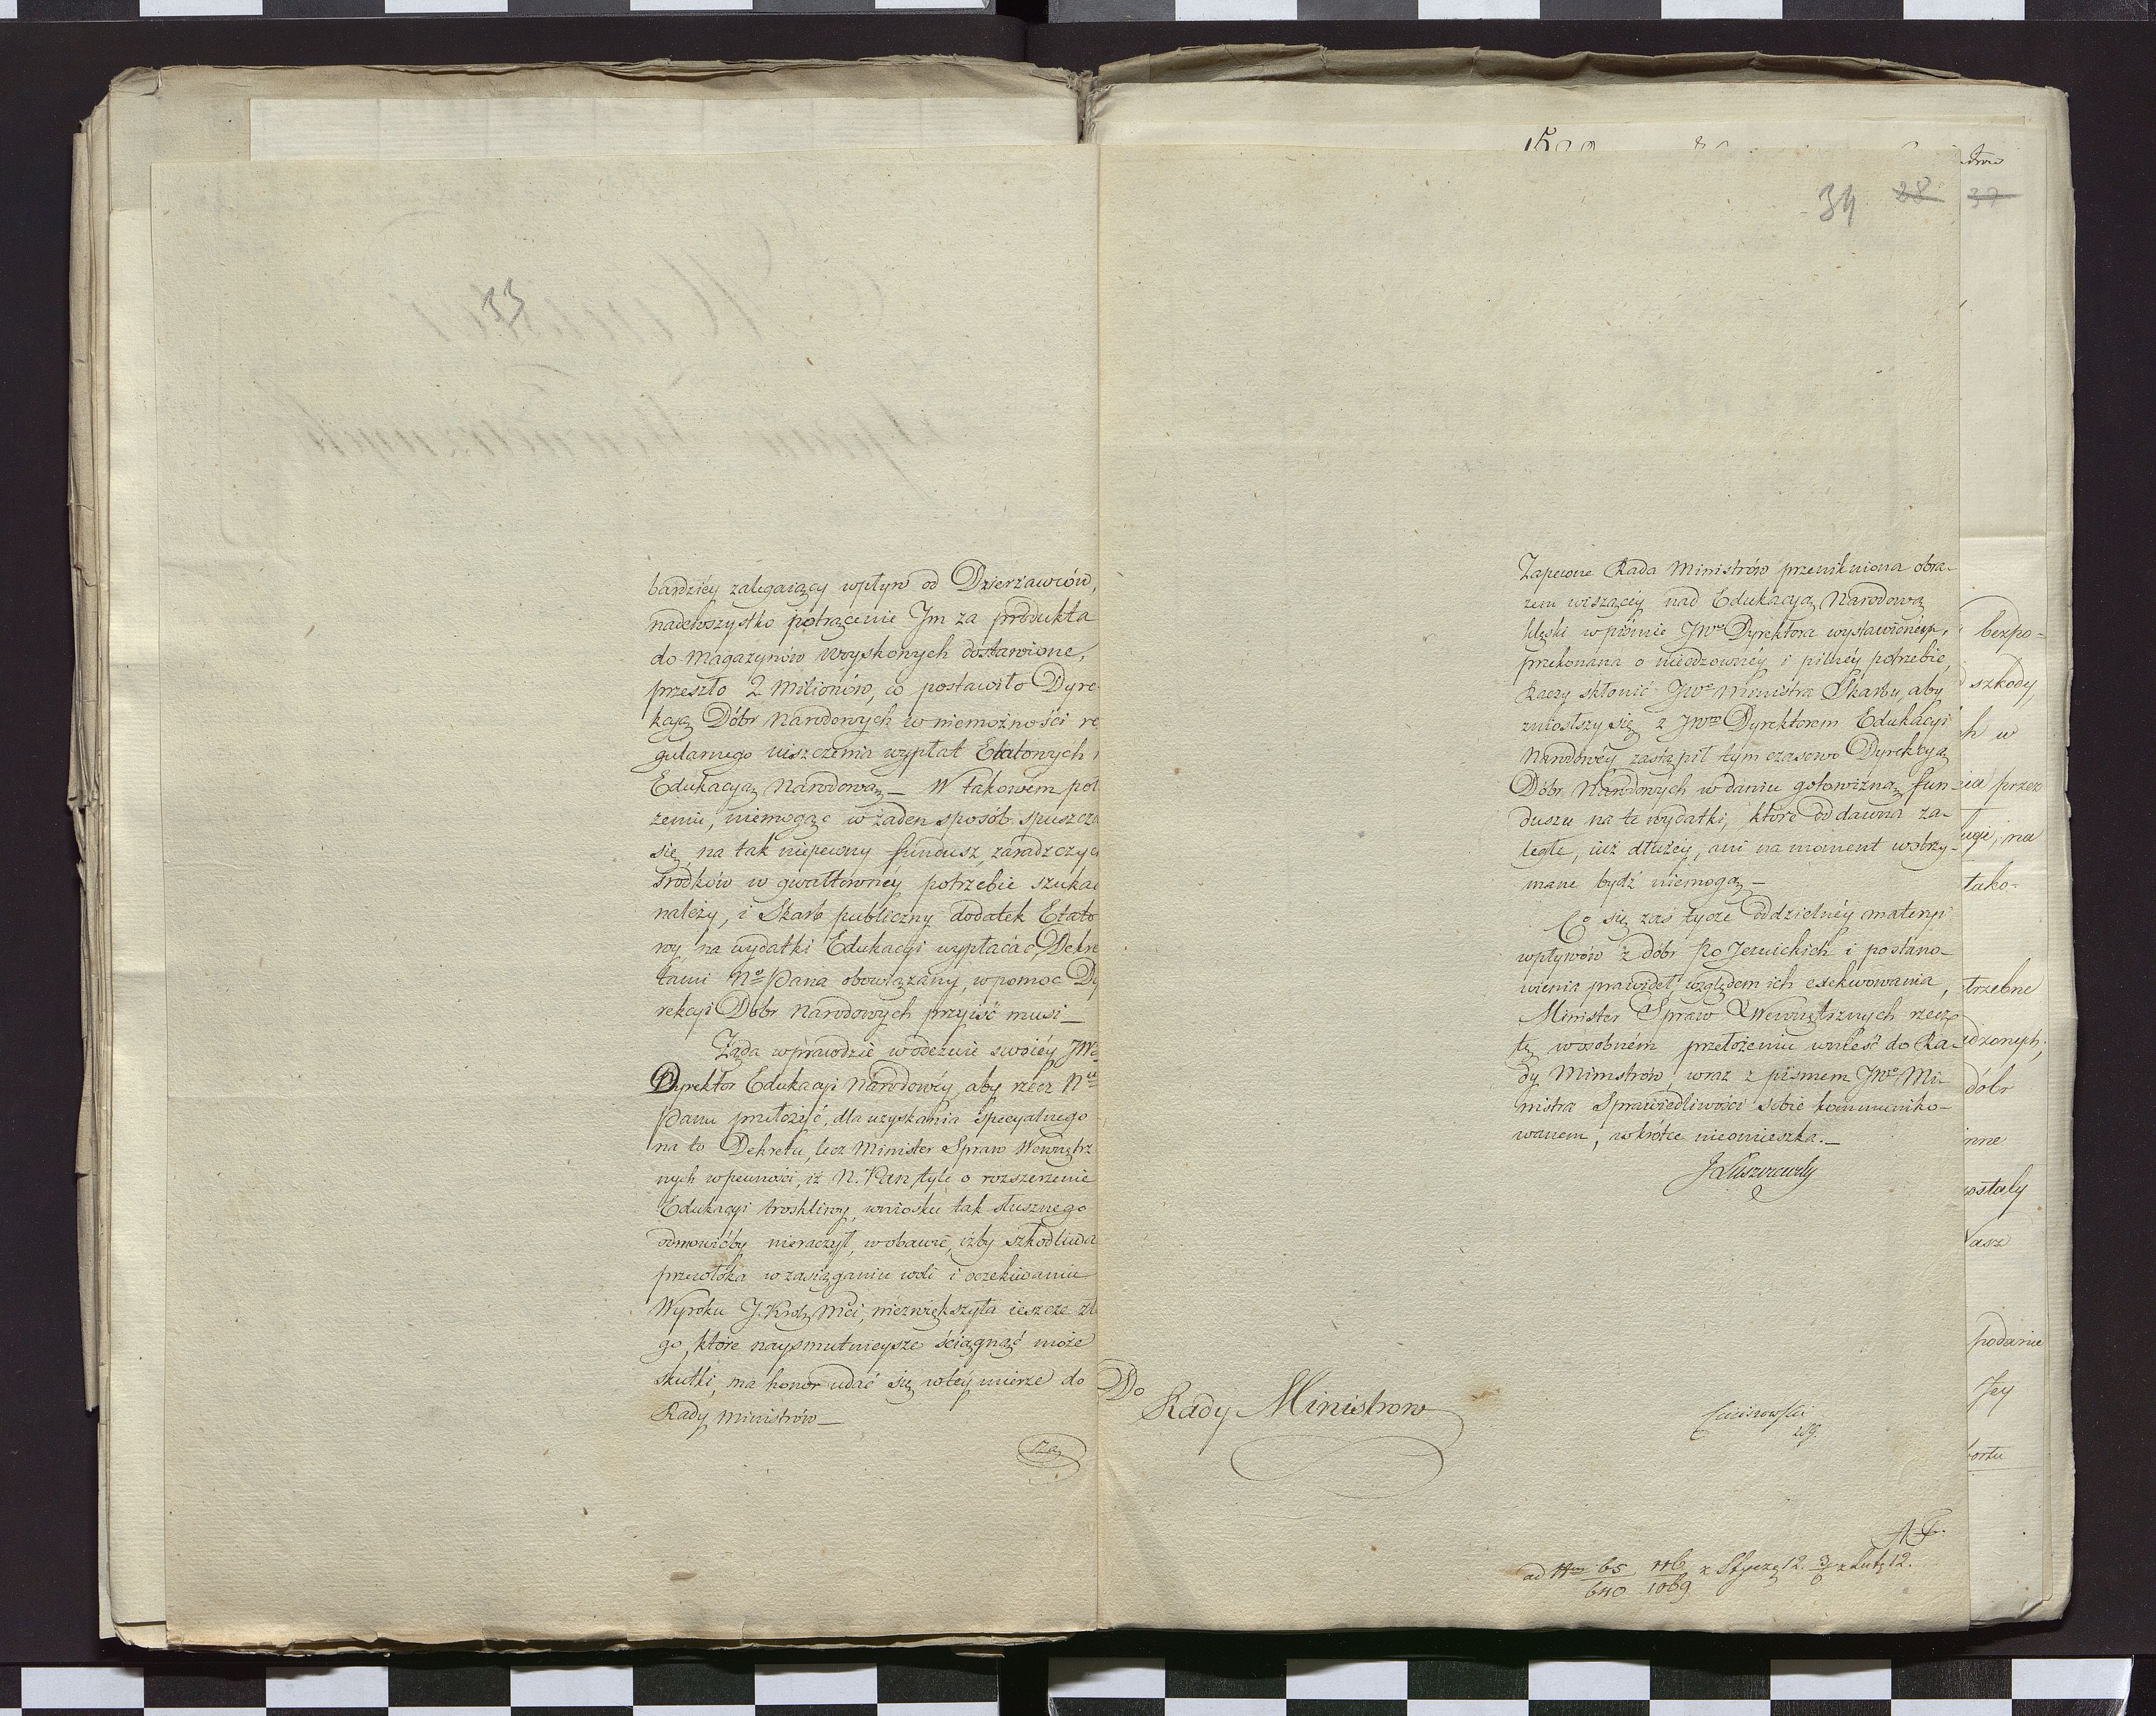 33
bardziéy zalegaiący wpływ od Dzierżawców,
nadewszystko potrącenie Im za produkta
do Magazynów Woyskowych dostawione,
przeszło 2 Milionów, co postawiło Dyre
kcyą Dóbr Narodowych w niemożności re
gularnego uiszczenia wypłat Etatowych
Edukacyą Narodową_ W takowem poł
żeniu, niemogąc w żaden sposób spuszcza
się na tak niepewny fundusz, zaradczych
środków w gwałtowney potrzebie szukać
należy, i Skarb publiczny dodatek Etato
wy na wydatki Edukacyi wypłacać Dekre
tami No Pana obowiązany, w pomoc Dy
rekcyi Dóbr Narodowych przyiść musi_
Żąda wprawdzie w odezwie swoiéy JWo
Dyrektor Edukacyi Narodowéy, aby rzecz Nu
Panu przełożyć, dla uzyskania specyalnego
na to Dekretu, lecz Minister Spraw Wewnętrz
nych w pewności, iż N. Pan tyle o rozszerzenie
Edukacyi troskliwy, wniosku tak słusznego
odmówićby nieraczył, w obawie, iżby szkodliwa
przewłoka w zasiąganiu woli i oczekiwaniu
Wyroku J. Król. Mci, niezwiększyła ieszcze zł
go, które naysmutnieysze ściągnąć może
skutki, ma honor udać się w téy mierze do
Rady Ministrów_
Za
34 38 37
Zapewne Rada Ministrów przenikniona obra-
zem wiszącéy nad Edukacyą Narodową
klęski w piśmie JWo Dyrektora wystawionéy,
przekonana o nieodzownéy i pilnéy potrzebie,
raczy skłonić JWo Ministra Skarbu, aby
zniosłszy się z JWm Dyrektorem Edukacyi
Narodowéy zastąpił tymczasowo Dyrekcyą
Dóbr Narodowych w daniu gotowizną fun-
duszu na te wydatki, które oddawna za-
ległe, iuż dłużéy, ani na moment wstrzy-
mane bydź niemogą_
Co się zaś tycze oddzielnéy materyi
wpływów z dóbr Po Jezuickich i postano-
wienia prawideł względem ich exekwowania,
Minister Spraw Wewnętrznych rzecz
tę w osobném przełożeniu wnieść do Ra-
dy Ministrów, wraz z pismem JWo Mi-
nistra Sprawiedliwości sobie kommuniko-
wanem, wkrótce nieomieszka._
J Łuszczewsky
Do
Rady Ministrow
ad Nm 65/640 116/1069 z Stycz. 12. 3/6 z Lut. 12.
bezpo-
szkody,
h w
przez
na
tako-
trzebne
dzonych,
dóbr
inne
ostały
Wasz
podanie
Jey